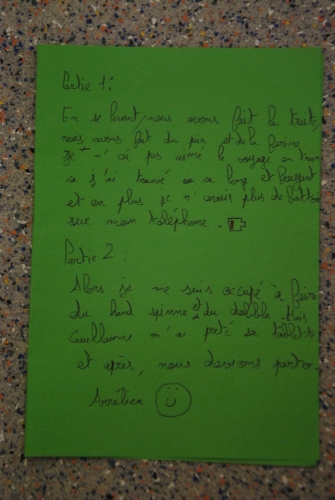 Partie 1 :
En se levant, nous avons fait la traite,
nous avons fait du pain et de la farine.
Je n'ai pas aimé le voyage en train
j'ai trouvé ça long et
et en plus je n'avais plus de batterie
sur mon téléphone.
Partie 2 :
Alors je me suis occupé à faire
du hand spinner et du
Guillaume m'a prété sa tablette
et après, nous devions
Aurélien